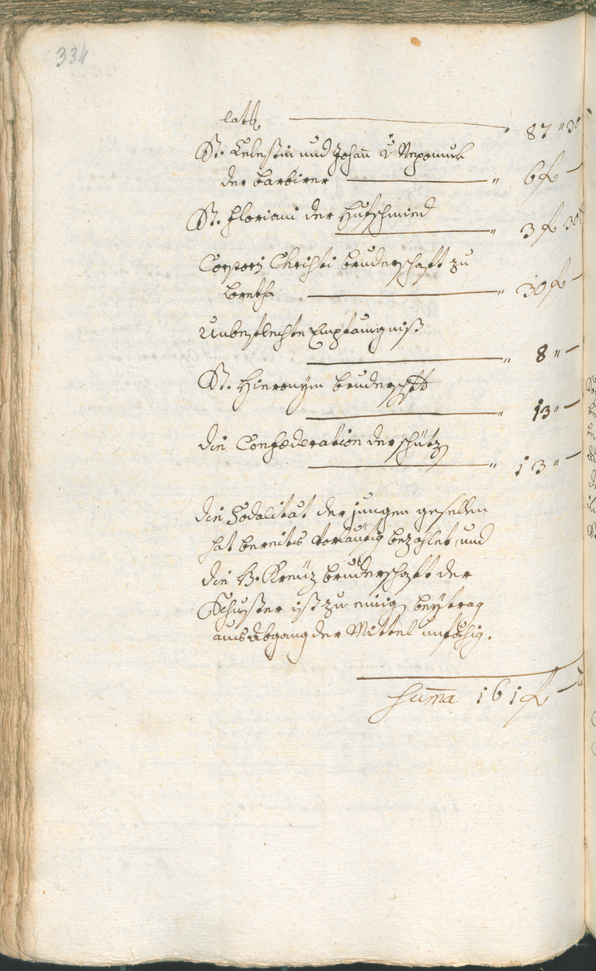 334
87 " 3
St. Celestin und Johan v Nepomuk
der barbirer — " 6 f —
St. Floriani der Hufschmied
— " 3 f 30
Corporis Christi bruderschaft zu
— " 30 f —
Unbeflechte Empfängniß
— " 8 " —
St. Hieronym bruderschfft
— " 13 " —
die Confœderation der schütz
— " 13 " —
die Sodalitat der jungen gesellen
hat bereits vorläufig bezahlet, und
die H. Kreuz bruderschafft der
Schuster ist zu einig beytrag
aus Abgang der Mittel unfähig.
Suma 161 f —